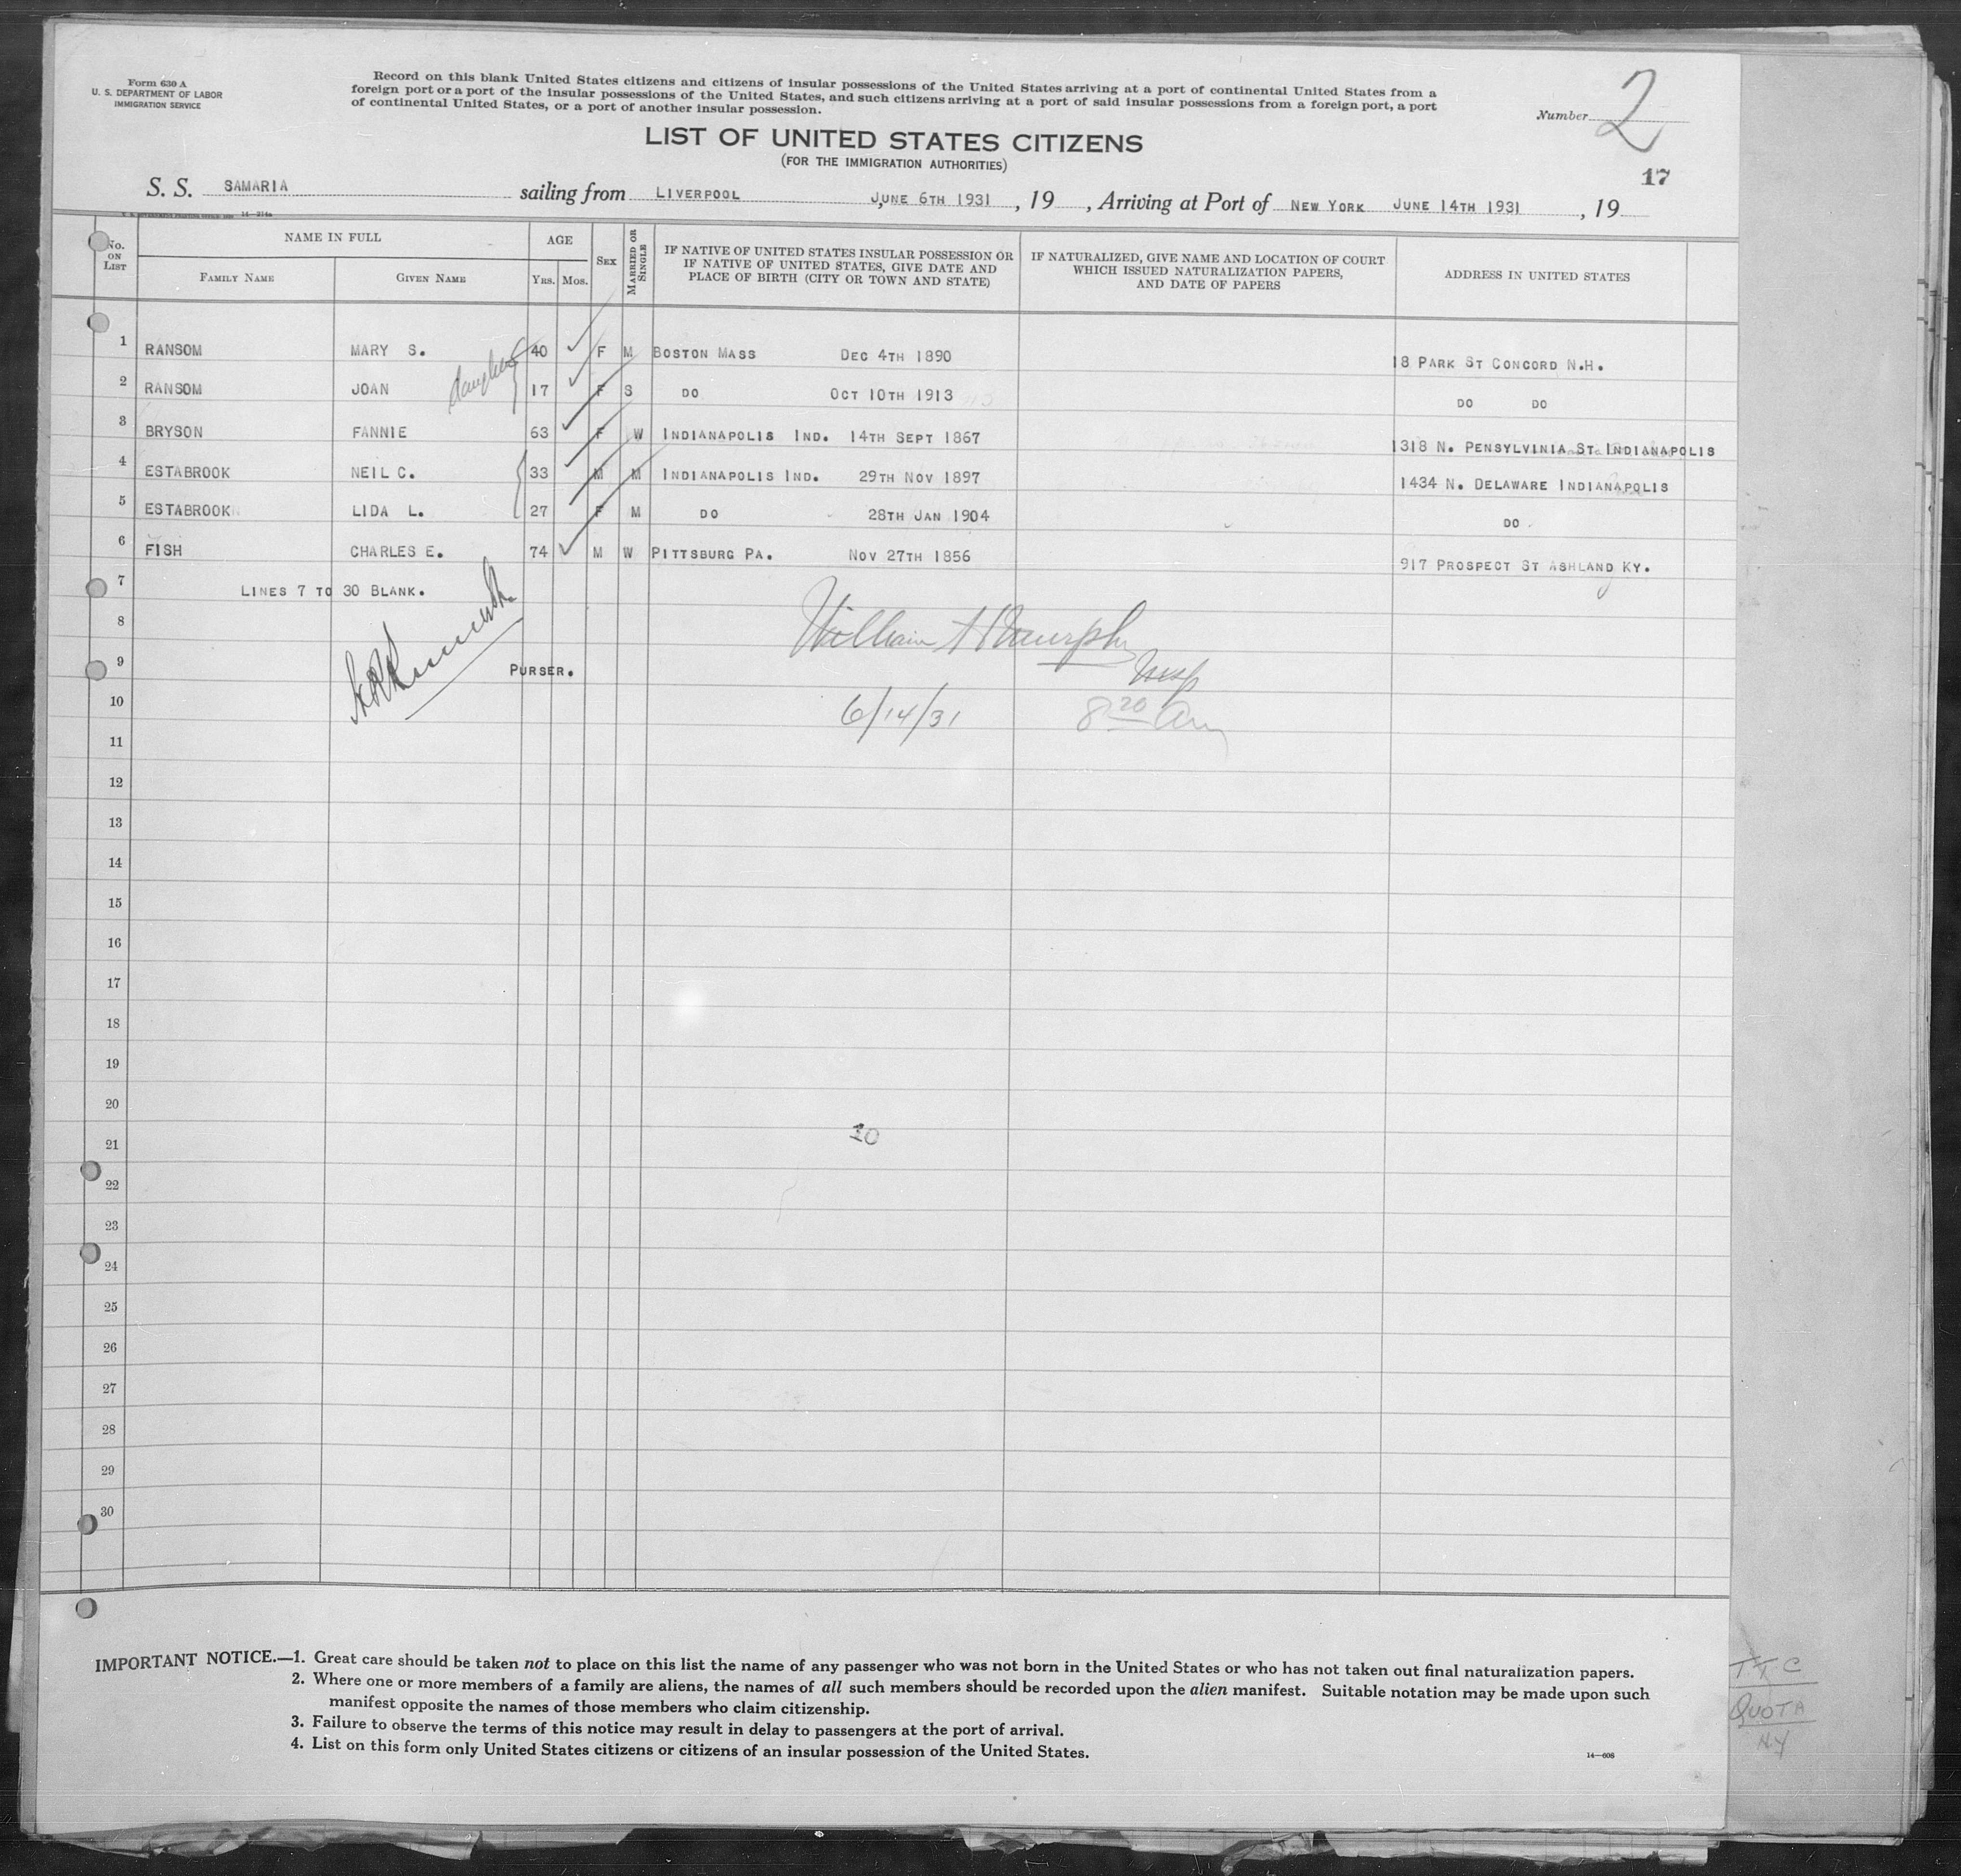 Form 630 A
U. S. DEPARTMENT OF LABOR
IMMIGRATION SERVICE
Record on this blank United States citizens and citizens of insular possessions of the United States arriving at a port of continental United States from a
foreign port or a port of the insular possessions of the United States, and such citizens arriving at a port of said insular possessions from a foreign port, a port
of continental United States, or a port of another insular possession.
Number 2
LIST OF UNITED STATES CITIZENS
(FOR THE IMMIGRATION AUTHORITIES)
17
S. S. SAMARIA sailing from LIVERPOOL JUNE 6TH 1931, 19 , Arriving at Port of NEW YORK JUNE 14TH 1931, 19
No. ON LIST
NAME IN FULL
FAMILY NAME
GIVEN NAME
AGE
YRS. MOS.
SEX
MARRIED OR SINGLE
IF NATIVE OF UNITED STATES INSULAR POSSESSION OR
IF NATIVE OF UNITED STATES, GIVE DATE AND
PLACE OF BIRTH (CITY OR TOWN AND STATE)
IF NATURALIZED, GIVE NAME AND LOCATION OF COURT
WHICH ISSUED NATURALIZATION PAPERS,
AND DATE OF PAPERS
ADDRESS IN UNITED STATES
1 RANSOM MARY S. 40 F M BOSTON MASS DEC 4TH 1890 18 PARK ST CONCORD N.H.
daughter
2 RANSOM JOAN 17 F S DO OCT 10TH 1913 DO DO
3 BRYSON FANNIE 63 F W INDIANAPOLIS IND. 14TH SEPT 1867 1318 N. PENSYLVINIA ST INDIANAPOLIS
4 ESTABROOK NEIL C. 33 M M INDIANAPOLIS IND. 29TH NOV 1897 1434 N. DELAWARE INDIANAPOLIS
5 ESTABROOK LIDA L. 27 F M DO 28TH JAN 1904 DO
6 FISH CHARLES E. 74 M W PITTSBURG PA. NOV 27TH 1856 917 PROSPECT ST ASHLAND KY.
7 LINES 7 TO 30 BLANK.
8 William H Murphy
9 PURSER. Insp
10 6/14/31 8 20 am
11
12
13
14
15
16
17
18
19
20
21 10
22
23
24
25
26
27
28
29
30
IMPORTANT NOTICE.—1. Great care should be taken not to place on this list the name of any passenger who was not born in the United States or who has not taken out final naturalization papers.
2. Where one or more members of a family are aliens, the names of all such members should be recorded upon the alien manifest. Suitable notation may be made upon such
manifest opposite the names of those members who claim citizenship.
3. Failure to observe the terms of this notice may result in delay to passengers at the port of arrival.
4. List on this form only United States citizens or citizens of an insular possession of the United States.
14—608
QUOTA
NY